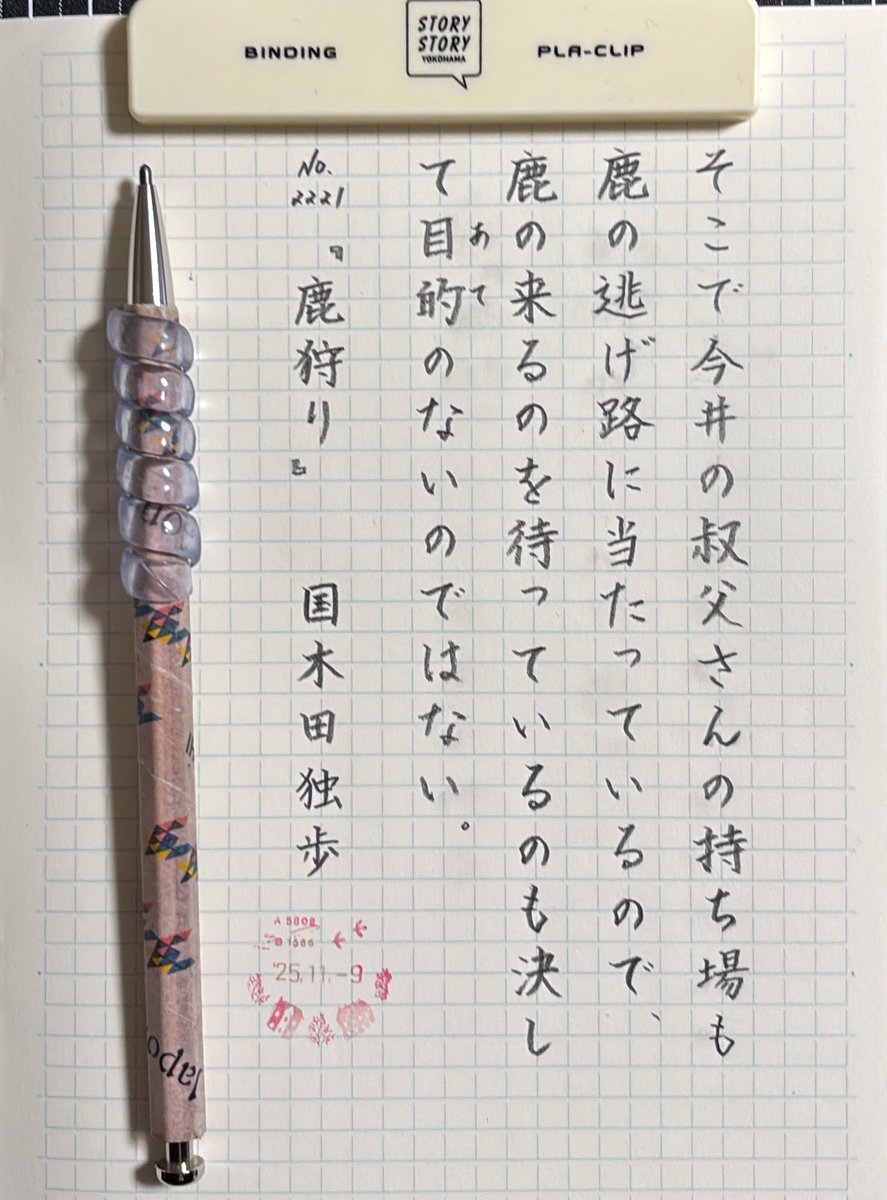 BINDING
STORY
STORY
YOKOHAMA
PLA-CLIP
そこで今井の叔父さんの持ち場も
鹿の逃げ路に当たっているので、
鹿の来るのを待っているのも決し
て目的のないのではない。
あて
No.
2221
『鹿狩り』 国木田独歩
'25.11.-9